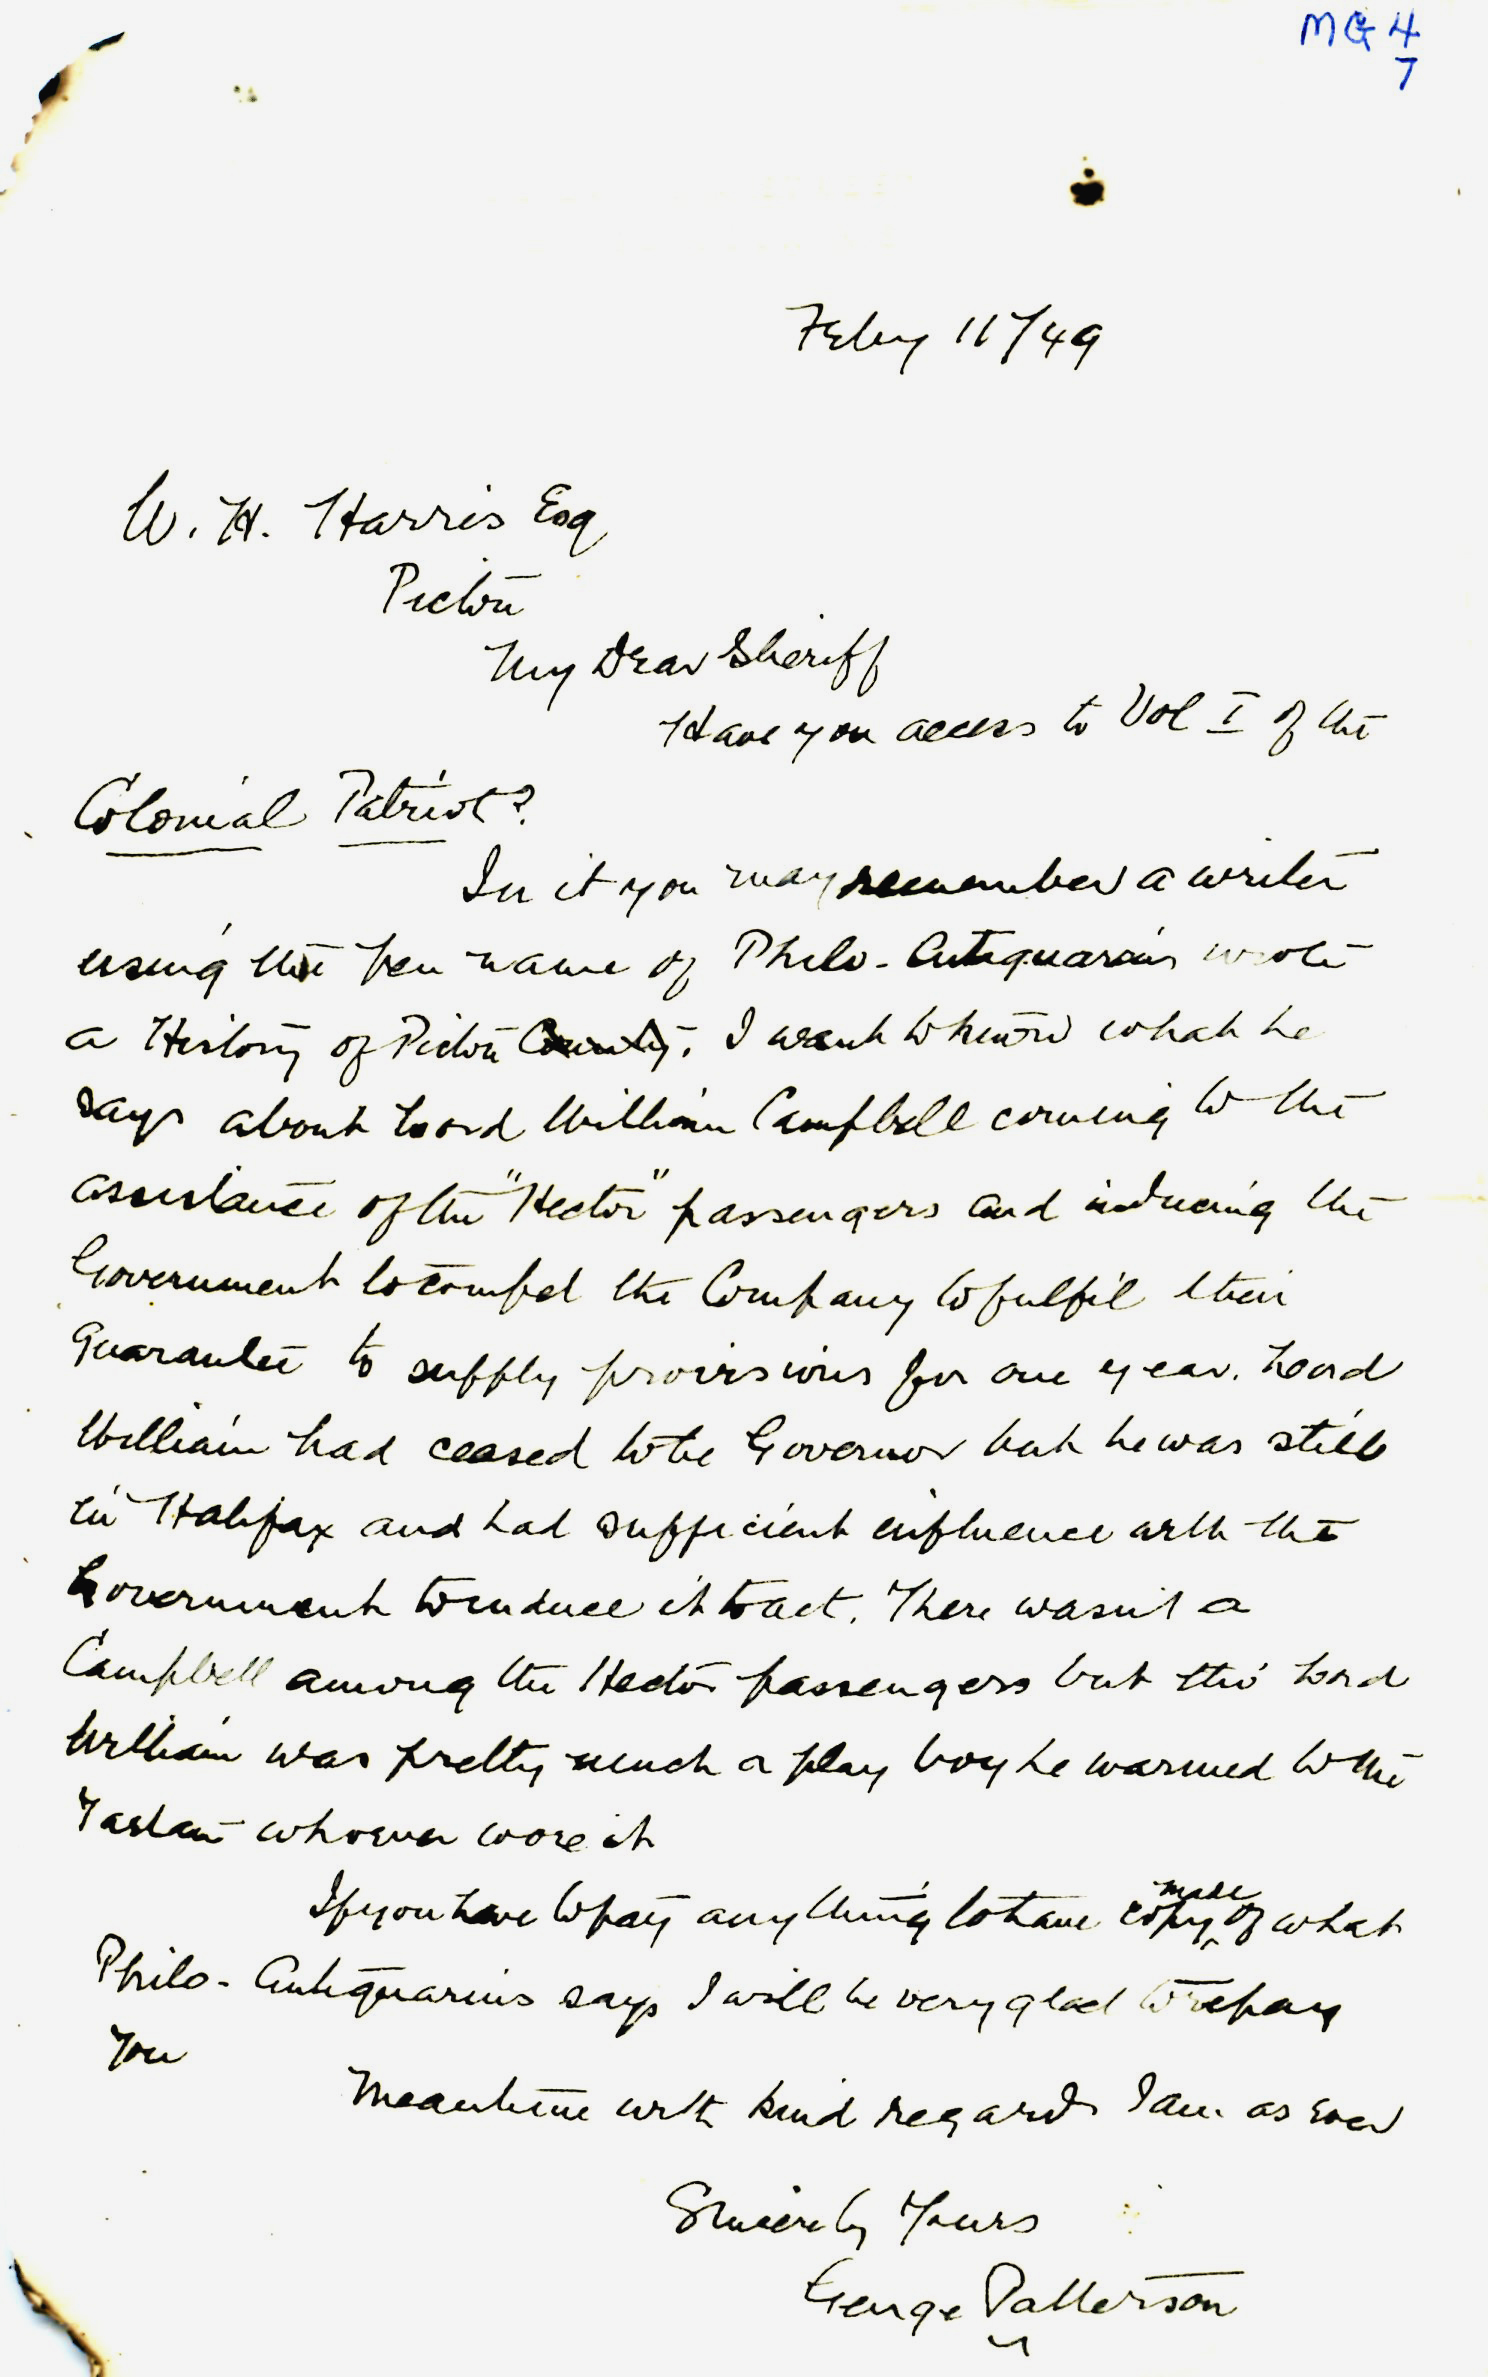 MG 4
7
Feby 11/49
W. H. Harris Esq
Pictou
My Dear Sheriff
Have you access to Vol I of the
Colonial Patriot?
In it you may remember a writer
using the pen name of Philo-Antiquarius wrote
a History of Pictou County. I want to know what he
says about Lord William Campbell coming to the
assistance of the "Hector" passengers and inducing the
Government to compel the Company to fulfil their
guarantee to supply provisions for one year. Lord
William had ceased to be Governor but he was still
in Halifax and had sufficient influence with the
Government to induce it to act. There wasn't a
Campbell among the Hector passengers but tho' Lord
William was pretty much a play boy he warmed to the
Tartan whoever wore it
If you have to pay anything to have copy made of what
Philo-Antiquarius says I will be very glad to repay
you
Meantime with kind regards I am as ever
Sincerely Yours
George Patterson